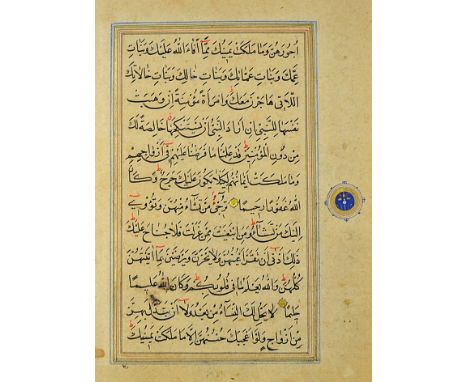 أُجُورَهُنَّ وَمَا مَلَكَتْ يَمِينُكَ مِمَّا أَفَاءَ اللَّهُ عَلَيْكَ وَبَنَاتِ
عَمِّكَ وَبَنَاتِ عَمَّاتِكَ وَبَنَاتِ خَالِكَ وَبَنَاتِ خَالَاتِكَ
اللَّاتِي هَاجَرْنَ مَعَكَ وَامْرَأَةً مُؤْمِنَةً إِنْ وَهَبَتْ
نَفْسَهَا لِلنَّبِيِّ إِنْ أَرَادَ النَّبِيُّ أَنْ يَسْتَنْكِحَهَا خَالِصَةً لَكَ
مِنْ دُونِ الْمُؤْمِنِينَ قَدْ عَلِمْنَا مَا فَرَضْنَا عَلَيْهِمْ فِي أَزْوَاجِهِمْ
وَمَا مَلَكَتْ أَيْمَانُهُمْ لِكَيْلَا يَكُونَ عَلَيْكَ حَرَجٌ وَكَانَ
اللَّهُ غَفُورًا رَحِيمًا تُرْجِي مَنْ تَشَاءُ مِنْهُنَّ وَتُؤْوِي
إِلَيْكَ مَنْ تَشَاءُ وَمَنِ ابْتَغَيْتَ مِمَّنْ عَزَلْتَ فَلَا جُنَاحَ عَلَيْكَ
ذَلِكَ أَدْنَى أَنْ تَقَرَّ أَعْيُنُهُنَّ وَلَا يَحْزَنَّ وَيَرْضَيْنَ بِمَا آتَيْتَهُنَّ
كُلُّهُنَّ وَاللَّهُ يَعْلَمُ مَا فِي قُلُوبِكُمْ وَكَانَ اللَّهُ عَلِيمًا
حَلِيمًا لَا يَحِلُّ لَكَ النِّسَاءُ مِنْ بَعْدُ وَلَا أَنْ تَبَدَّلَ بِهِنَّ
مِنْ أَزْوَاجٍ وَلَوْ أَعْجَبَكَ حُسْنُهُنَّ إِلَّا مَا مَلَكَتْ يَمِينُكَ